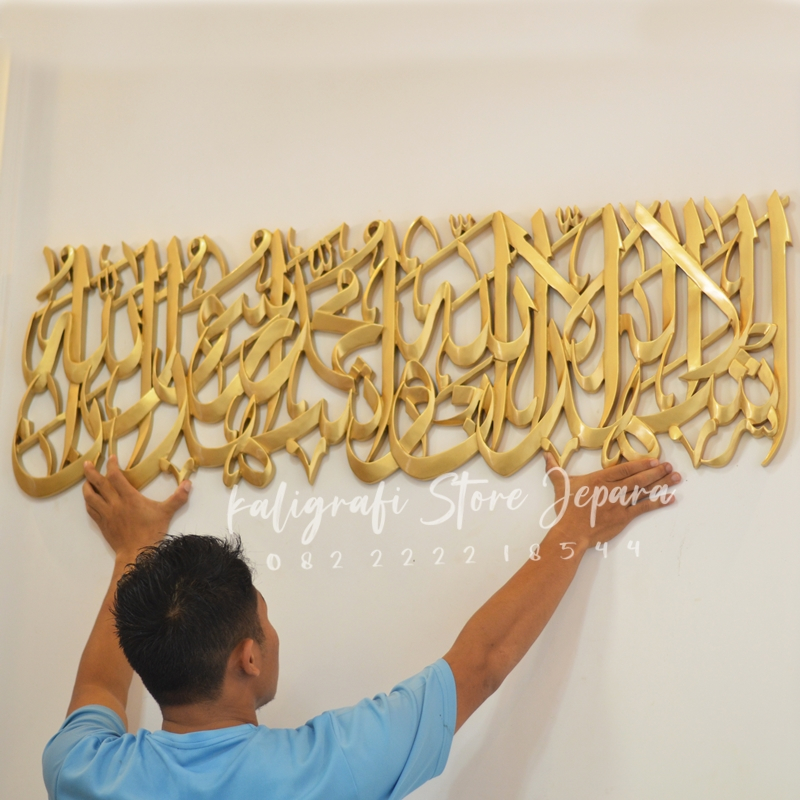 اشهد ان لا اله الا الله واشهد ان محمدا رسول الله
Kaligrafi Store Jepara
082 2222 18544